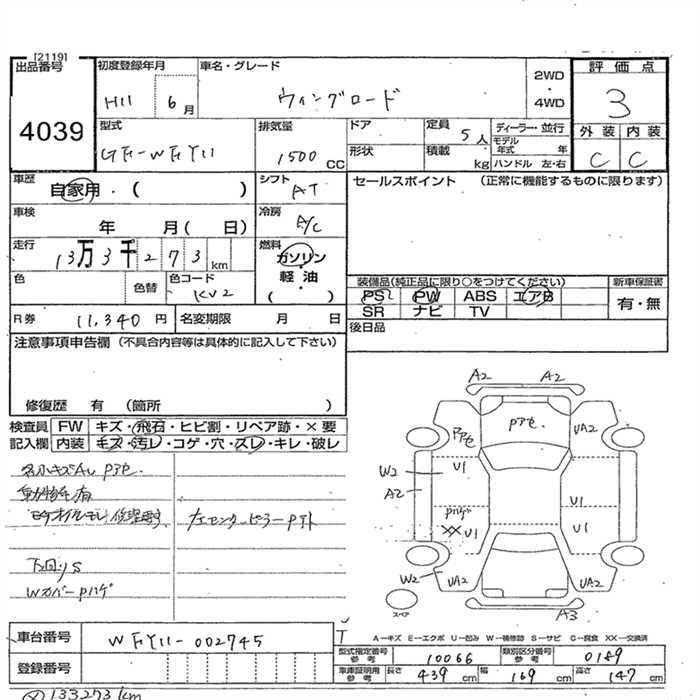 [2119]
出品番号
4039
初度登録年月
H11 6月
車名・グレード
ウィングロード
2WD
・
4WD
評価点
3
外装 内装
C C
型式
GF-WFY11
排気量
1500 CC
ドア
形状
定員 5人
積載 kg
ディーラー・並行
モデル年式 年
ハンドル 左・右
車歴
自家用・( )
シフト
AT
セールスポイント (正常に機能するものに限ります)
車検
年 月( 日)
冷房
A/C
走行
13万3千273km
燃料
ガソリン
・
軽油
( )
色
色替
色コード
KV2
装備品(純正品に限り○をつけてください)
PS PW ABS エアB
SR ナビ TV
新車保証書
有・無
R券 11,340円
名変期限 月 日
後日品
注意事項申告欄(不具合内容等は具体的に記入して下さい)
修復歴 有 (箇所 )
検査員記入欄
FW キズ・飛石・ヒビ割・リペア跡・×要
内装 キズ・汚レ・コゲ・穴・スレ・キレ・破レ
左センターピラーPアト
下回りS
WカバーPハゲ
A2 A2
Pアセ
Pアセ
UA2
U1
W2
A2
Pハゲ
XX U1
U1
U1
W2
UA2
UA2
A3
スペア
車台番号
WFY11-002745
登録番号
A－キズ E－エクボ U－凹み W－補修跡 S－サビ C－腐食 XX－交換済
型式指定番号参考 10066
類別区分番号参考 0189
車庫証明用参考 長さ 439cm 幅 169cm 高さ 147cm
133273km